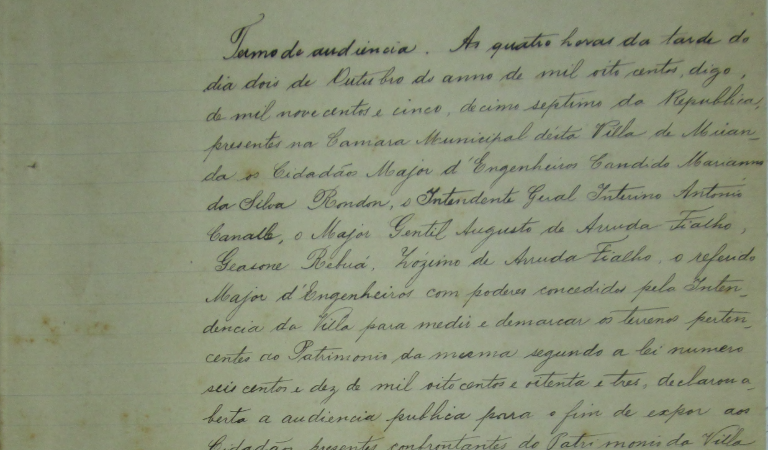 Termo de audiencia. As quatro horas da tarde do
dia dois de Outubro do anno de mil oito centos, digo,
de mil nove centos e cinco, decimo septimo da Republica,
presentes na Camara Municipal desta Villa de Miran-
da os Cidadãos Major d'Engenheiros Candido Marianno
da Silva Rondon, o Intendente Geral Interino Antonio
Canale, o Major Gentil Augusto de Arruda Fialho,
Geasone Rebuá, Zozimo de Arruda Fialho, o referido
Major d'Engenheiros com poderes concedidos pela Inten-
dencia da Villa para medir e demarcar os terrenos perten-
centes ao Patrimonio da mesma segundo a lei numero
seis centos e dez de mil oito centos e oitenta e tres, declarou a-
berta a audiencia publica para o fim de expor aos
Cidadãos presentes confrontantes do Patrimonio da Villa